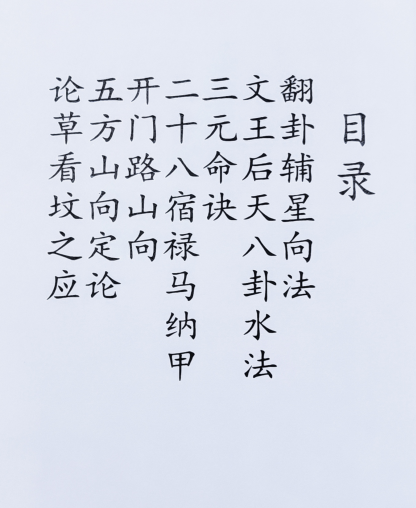 目录
翻卦辅星向法
文王后天八卦水法
三元命诀
二十八宿禄马纳甲
开门路山向
五方山向定论
论草看坟之应